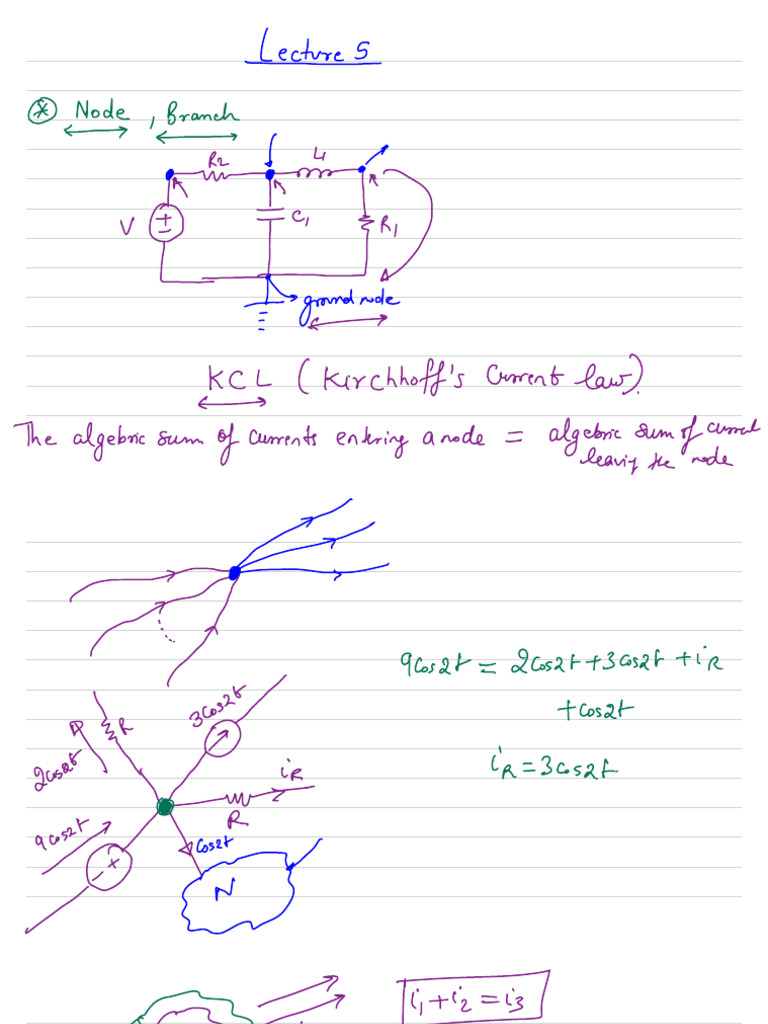 Lecture 5
* Node, Branch
R2
L1
V
C1
R1
ground node
KCL (Kirchhoff's Current law).
The algebric sum of currents entering a node = algebric sum of current
leaving the node
9cos2t = 2cos2t + 3cos2t + iR
+ cos2t
iR = 3cos2t
3cos2t
R
2cos2t
iR
R
9cos2t
cos2t
N
i1 + i2 = i3